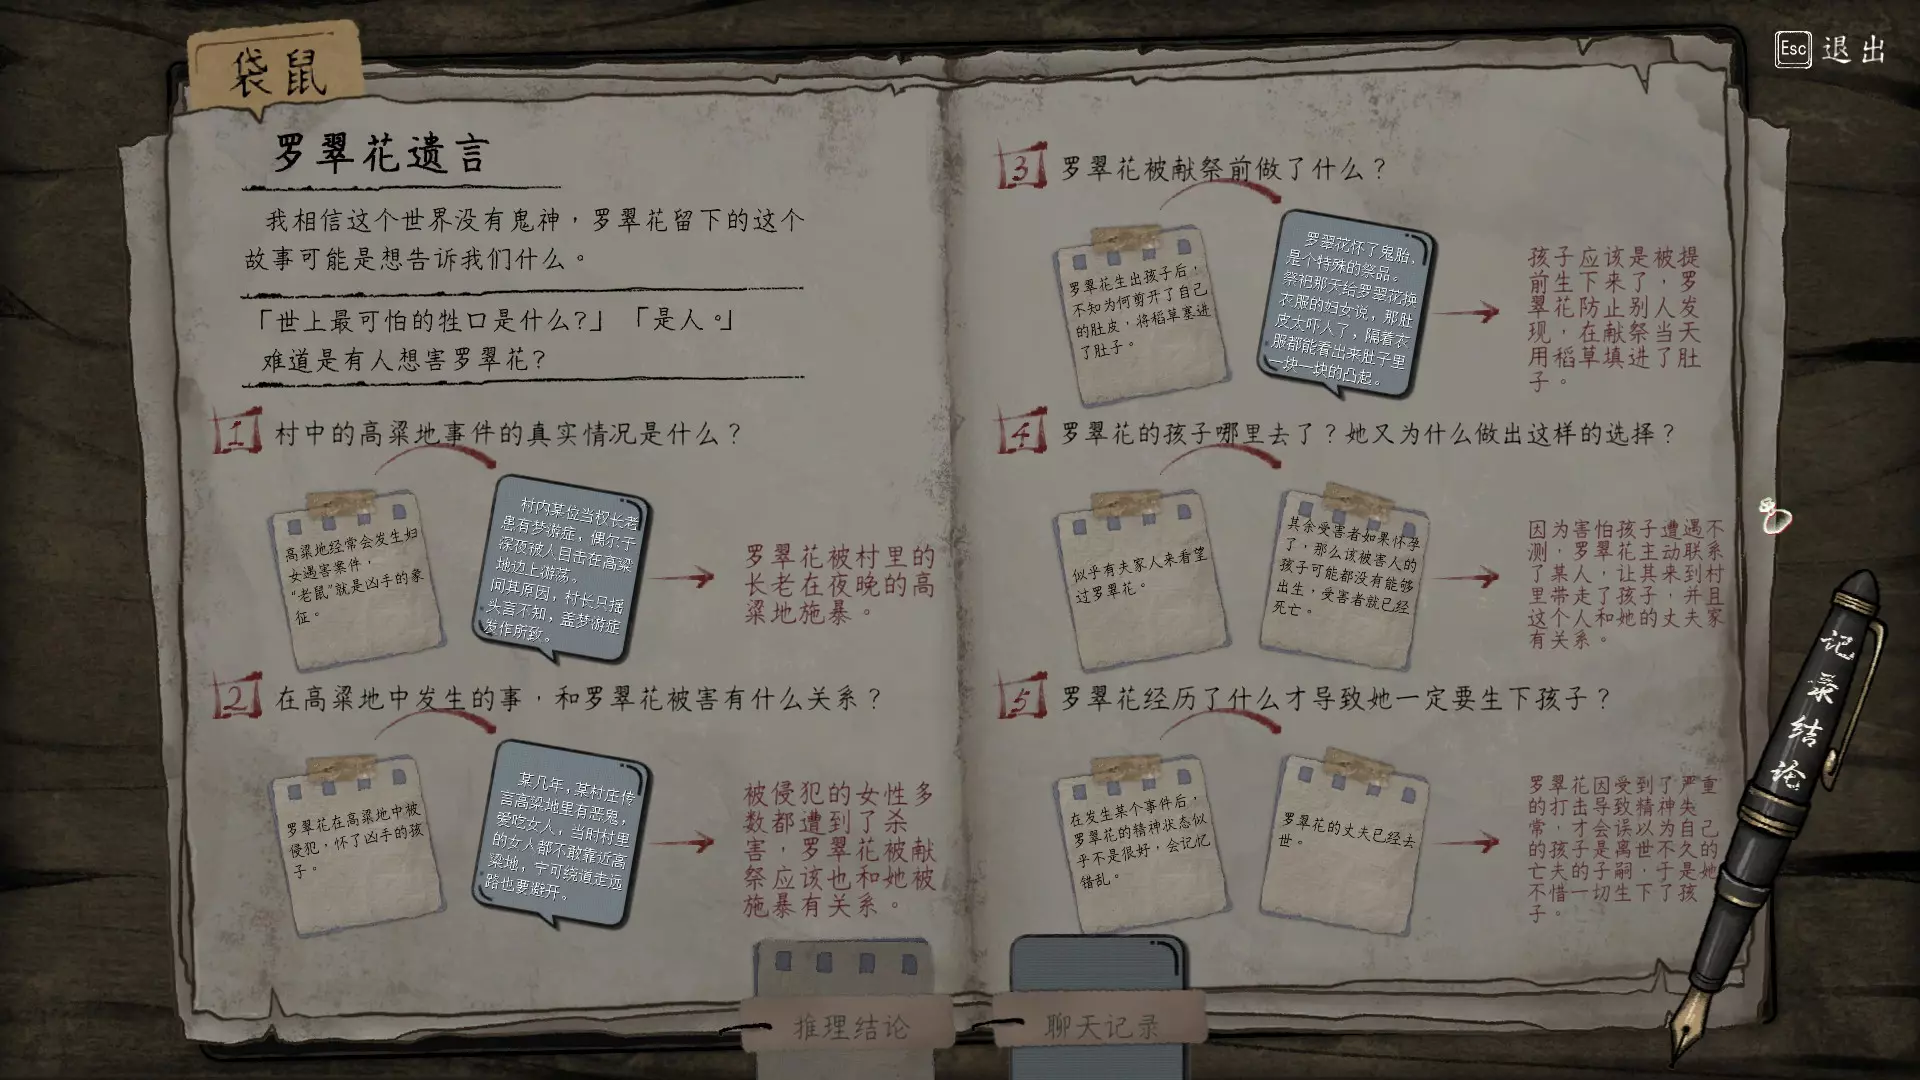 袋鼠
Esc 退出
罗翠花遗言
我相信这个世界没有鬼神，罗翠花留下的这个
故事可能是想告诉我们什么。
「世上最可怕的牲口是什么?」「是人。」
难道是有人想害罗翠花?
1 村中的高粱地事件的真实情况是什么？
高粱地经常会发生妇
女遇害案件，
“老鼠”就是凶手的象
征。
村内某位当权长老
患有梦游症，偶尔于
深夜被人目击在高粱
地边上游荡。
问其原因，村长只摇
头言不知，盖梦游症
发作所致。
罗翠花被村里的
长老在夜晚的高
粱地施暴。
2 在高粱地中发生的事，和罗翠花被害有什么关系？
罗翠花在高粱地中被
侵犯，怀了凶手的孩
子。
某几年，某村庄传
言高粱地里有恶鬼，
爱吃女人，当时村里
的女人都不敢靠近高
粱地，宁可绕道走远
路也要避开。
被侵犯的女性多
数都遭到了杀
害，罗翠花被献
祭应该也和她被
施暴有关系。
3 罗翠花被献祭前做了什么？
罗翠花生出孩子后，
不知为何剪开了自己
的肚皮，将稻草塞进
了肚子。
罗翠花怀了鬼胎，
是个特殊的祭品。
祭祀那天给罗翠花换
衣服的妇女说，那肚
皮太吓人了，隔着衣
服都能看出来肚子里
一块一块的凸起。
孩子应该是被提
前生下来了，罗
翠花防止别人发
现，在献祭当天
用稻草填进了肚
子。
4 罗翠花的孩子哪里去了？她又为什么做出这样的选择？
似乎有夫家人来看望
过罗翠花。
其余受害者如果怀孕
了，那么该被害人的
孩子可能都没有能够
出生，受害者就已经
死亡。
因为害怕孩子遭遇不
测，罗翠花主动联系
了某人，让其来到村
里带走了孩子，并且
这个人和她的丈夫家
有关系。
5 罗翠花经历了什么才导致她一定要生下孩子？
在发生某个事件后，
罗翠花的精神状态似
乎不是很好，会记忆
错乱。
罗翠花的丈夫已经去
世。
罗翠花因受到了严重
的打击导致精神失
常，才会误以为自己
的孩子是离世不久的
亡夫的子嗣，于是她
不惜一切生下了孩
子。
记录结论
推理结论
聊天记录